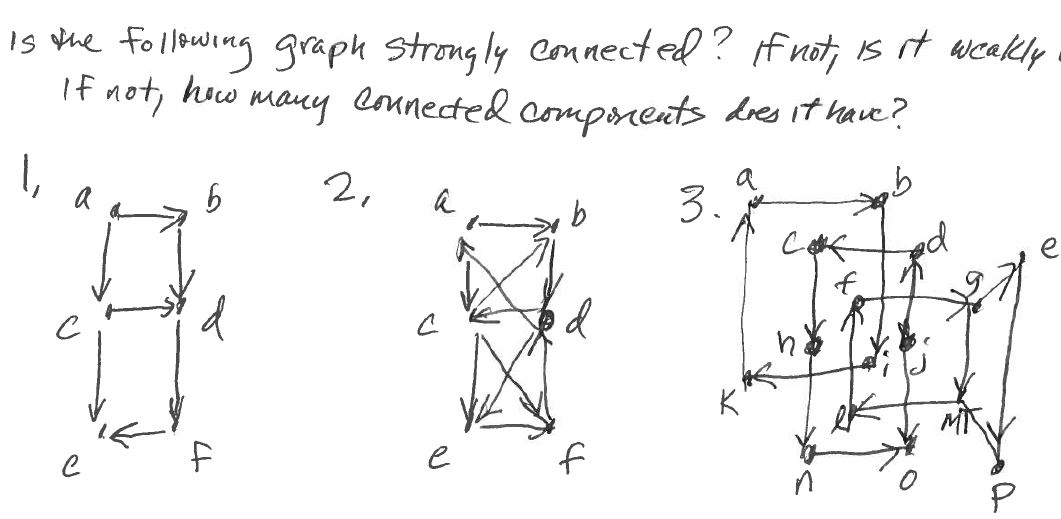 Is the following graph strongly connected? If not, is it weakly
If not, how many connected components does it have?
1, 2, 3.
a b a b a b
c d e
f g
c d c d h i j
k l m
e f e f n o p